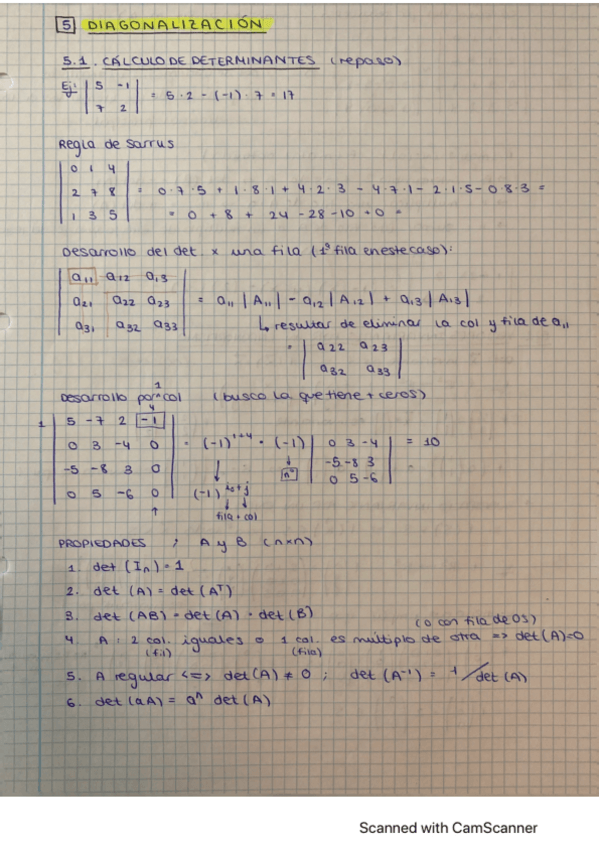 5 DIAGONALIZACIÓN
5.1. CÁLCULO DE DETERMINANTES (repaso)
Ej: | 5 -1 |
| 7 2 | = 5·2 - (-1)·7 = 17
Regla de Sarrus
| 0 1 4 |
| 2 7 8 | = 0·7·5 + 1·8·1 + 4·2·3 - 4·7·1 - 2·1·5 - 0·8·3 =
| 1 3 5 | = 0 + 8 + 24 - 28 - 10 + 0 =
Desarrollo del det x una fila (1ª fila en este caso):
| a11 a12 a13 |
| a21 a22 a23 | = a11 |A11| - a12 |A12| + a13 |A13|
| a31 a32 a33 | ↳ resultar de eliminar la col y fila de a11
= | a22 a23 |
| a32 a33 |
1
Desarrollo por col (busco la que tiene + ceros)
4
1 | 5 -7 2 -1 |
| 0 3 -4 0 | = (-1)^1+4 · (-1) | 0 3 -4 | = 10
| -5 -8 3 0 | | -5 -8 3 |
| 0 5 -6 0 | (-1)^i+j nº | 0 5 -6 |
↑ fila + col
PROPIEDADES ; A y B (n×n)
1. det (In) = 1
2. det (A) = det (A^T)
3. det (AB) = det (A) · det (B)
(o con fila de 0s)
4 A : 2 col. iguales o 1 col. es múltiplo de otra => det(A)=0
(fil) (fila)
5. A regular <=> det (A) ≠ 0 ; det (A^-1) = 1/det (A)
6. det (aA) = a^n det (A)
Scanned with CamScanner